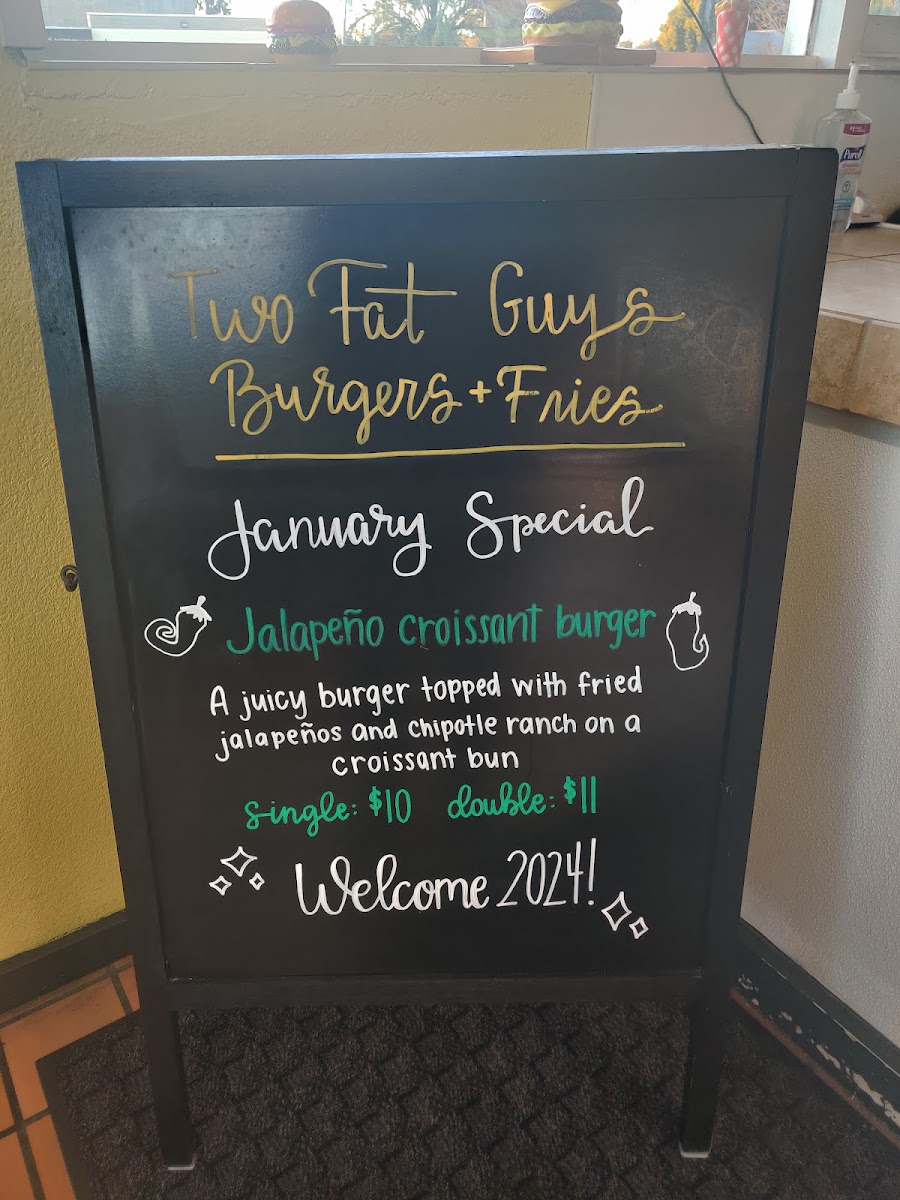 Two Fat Guys
Burgers + Fries
January Special
Jalapeño croissant burger
A juicy burger topped with fried
jalapeños and chipotle ranch on a
croissant bun
single: $10 double: $11
Welcome 2024!
Purell